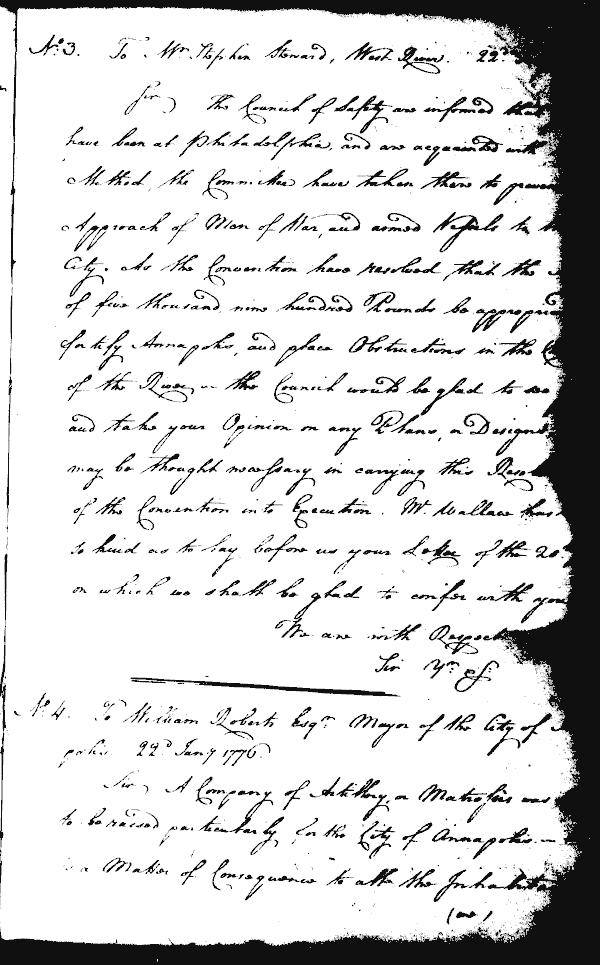 No. 3. To Mr. Stephen Steward, West River. 22d
Sir, The Council of Safety are informed that
have been at Philadelphia, and are acquainted with
Method, the Committee have taken there to preven
Approach of Men of War, and armed Vessels to
City. As the Convention have resolved, that the
of five thousand, nine hundred Pounds be appropria
fortify Annapolis, and place Obstructions in the
of the River, the Council would be glad to see
and take your Opinion on any Plans, or Designs
may be thought necessary in carrying this Reso
of the Convention into Execution. Mr. Wallace has
so kind as to lay before us your Letter of the 20
on which we shall be glad to confer with you
We are with Respect
Sir Yrs &c.
No. 4. To William Roberts Esqr. Mayor of the City of
polis 22d. Jany 1776.
Sir, A Company of Artillery, or Matrosses was
to be raised particularly for the City of Annapolis.—
is a Matter of Consequence to all the Inhabita